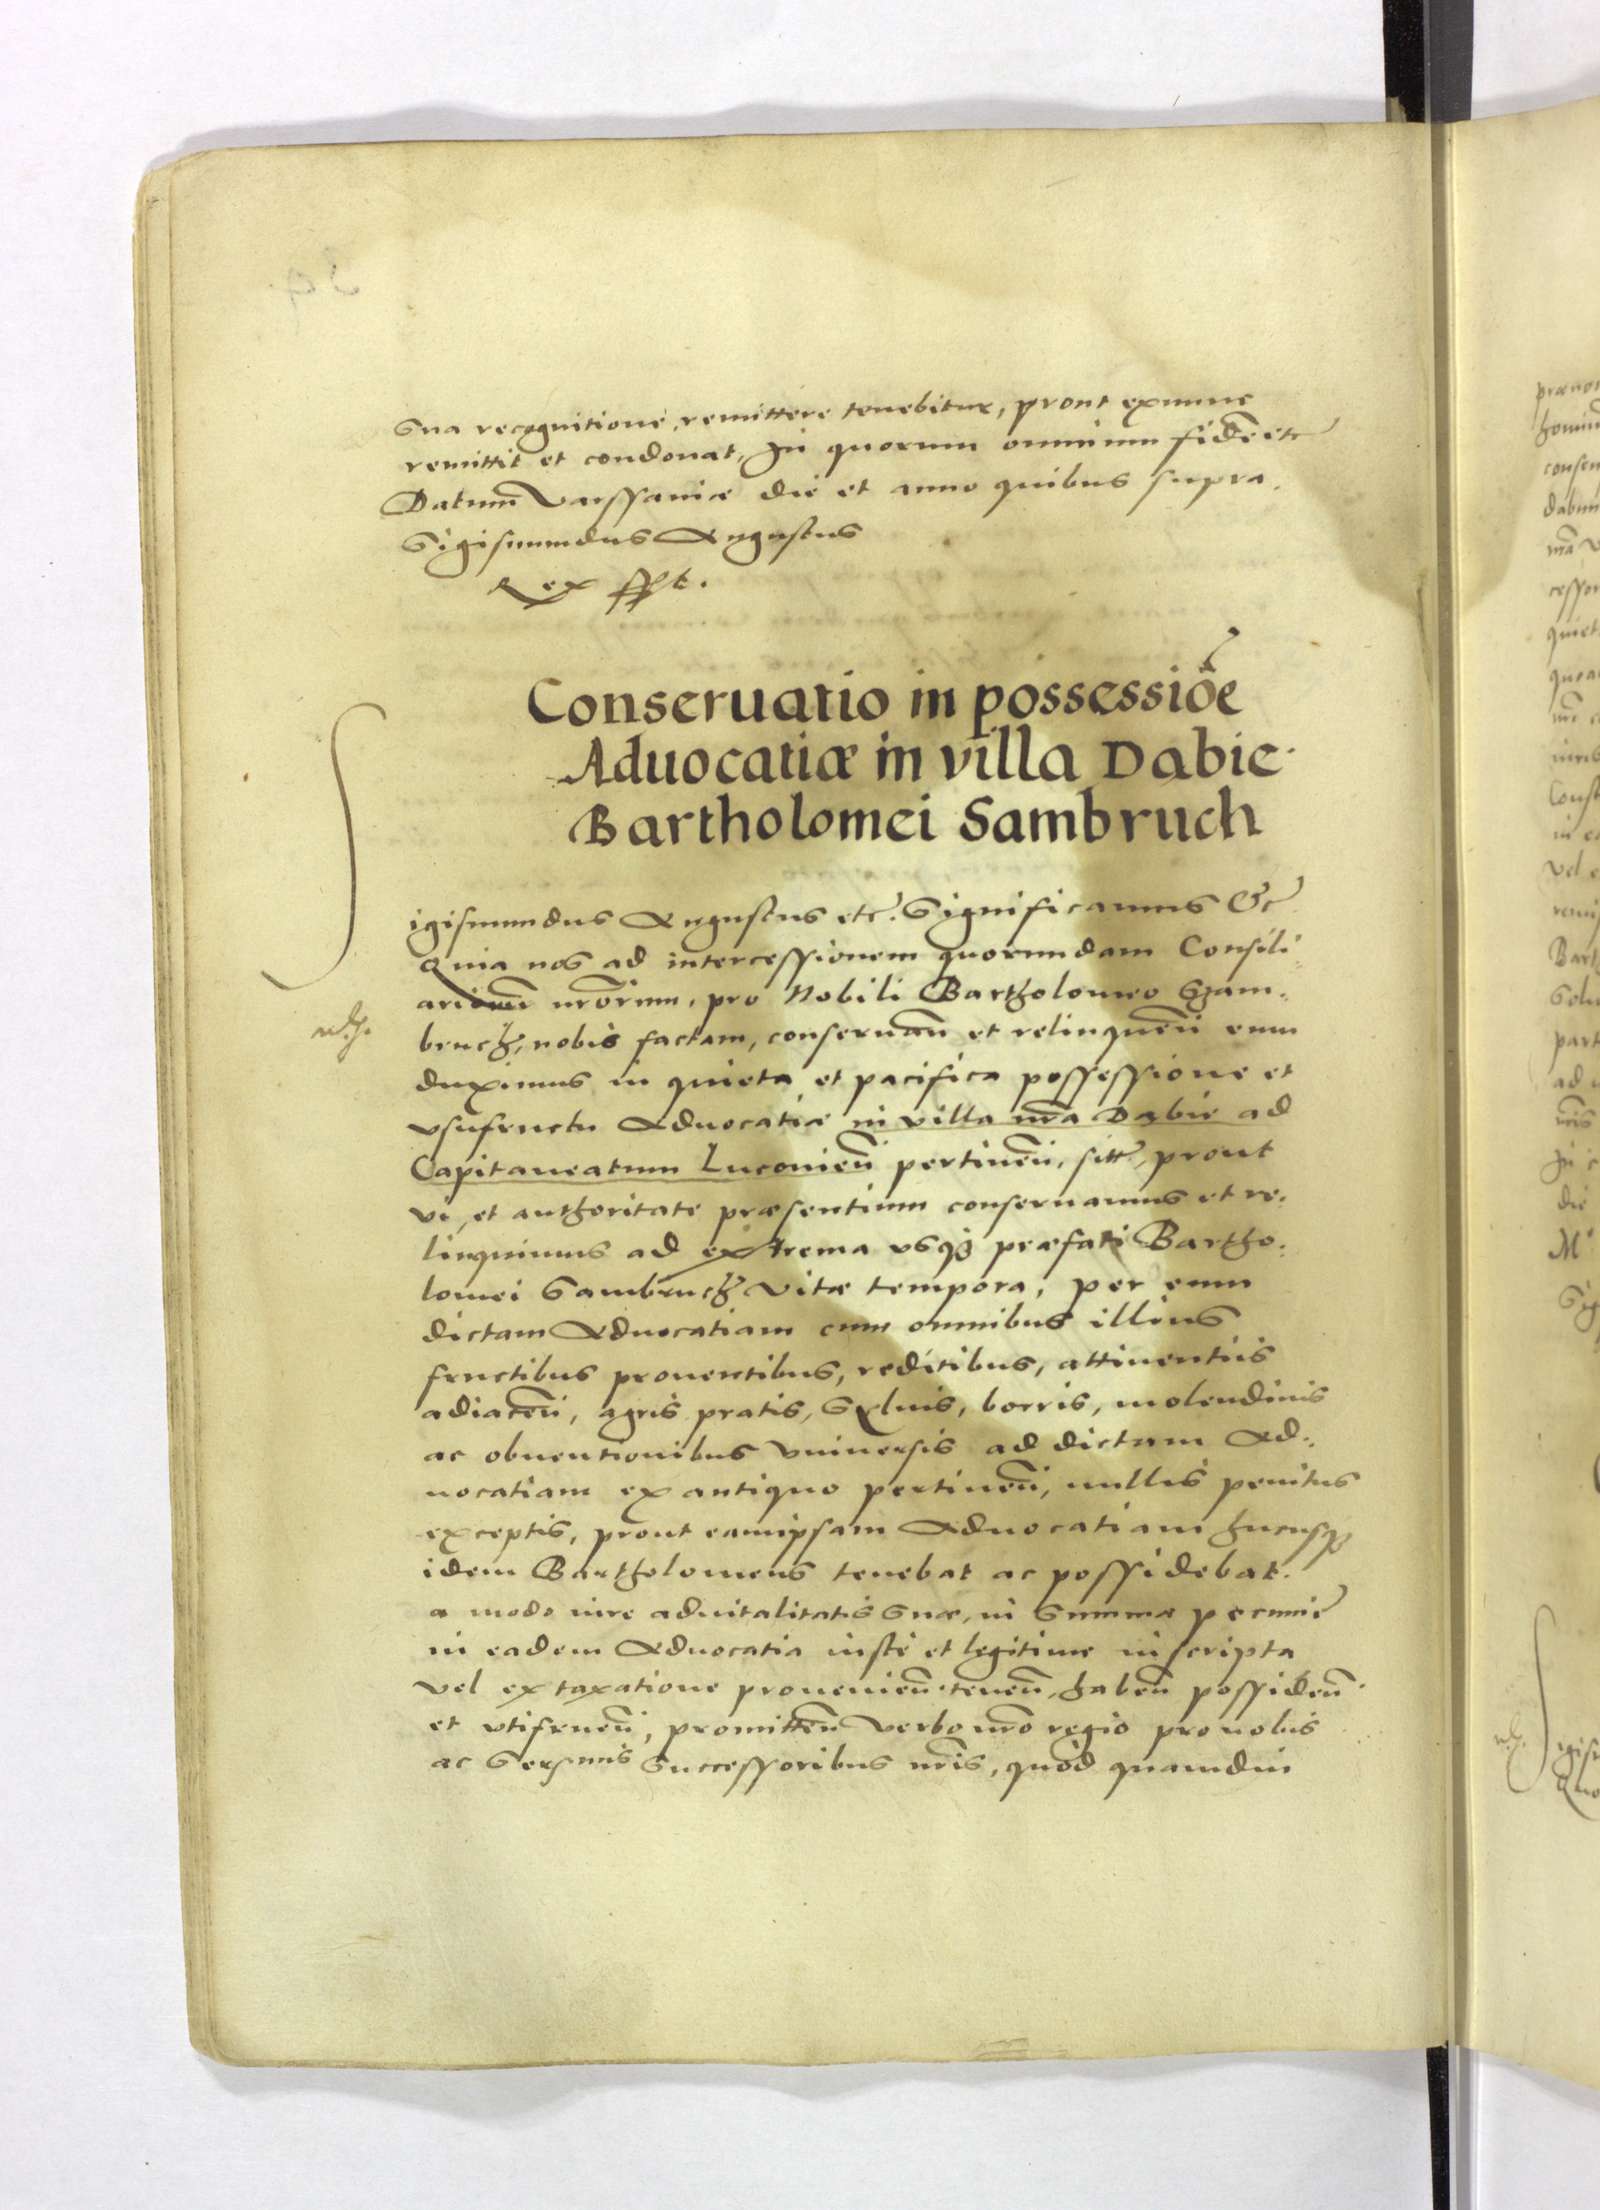 sua recognitione, remittere tenebitur, prout exnunc
remittit et condonat, In quorum omnium fidē etc
Datum Varssaviæ die et anno quibus supra.
Sigismundus Augustus
Rex sst.
Conseruatio in possessiōe
Aduocatiæ in villa Dabie
Bartholomei Sambruch
Sigismundus Augustus etc. Significamus &c
Quia nos ad intercessionem quorundam Consili
ariorum nrōrum, pro Nobili Bartholomeo Szam
bruch, nobis factam, conseruan̄ et relinquen̄ eum
duximus in quieta et pacifica possessione et
vsufructu Aduocatiæ in villa nrā Dabie ad
Capitaneatum Luconien̄ pertinen̄, sitæ, prout
vi, et authoritate præsentium conseruamus et re
linquimus ad extrema vsq3 præfati Bartho
lomei Sambruch vitæ tempora, per eum
dictam Aduocatiam cum omnibus illius
fructibus prouentibus, reditibus, attinentiis
adiacen̄, agris pratis, Syluis, borris, molendinis
ac obuentionibus vniuersis ad dictam Ad
uocatiam ex antiquo pertinen̄, nullis penitus
exceptis, prout eamipsam Aduocatiam hucusq3
idem Bartholomeus tenebat ac possidebat.
a modo iure aduitalitatis suæ, in Summæ pecuniæ
in eadem Aduocatia iuste et legitime inscripta
vel ex taxatione prouenien̄. tenen̄, haben̄ possiden̄
et vtifruen̄, promitten̄ verbo nrō regio pro nobis
ac Serenmis Successoribus nrīs, quòd quamdiu